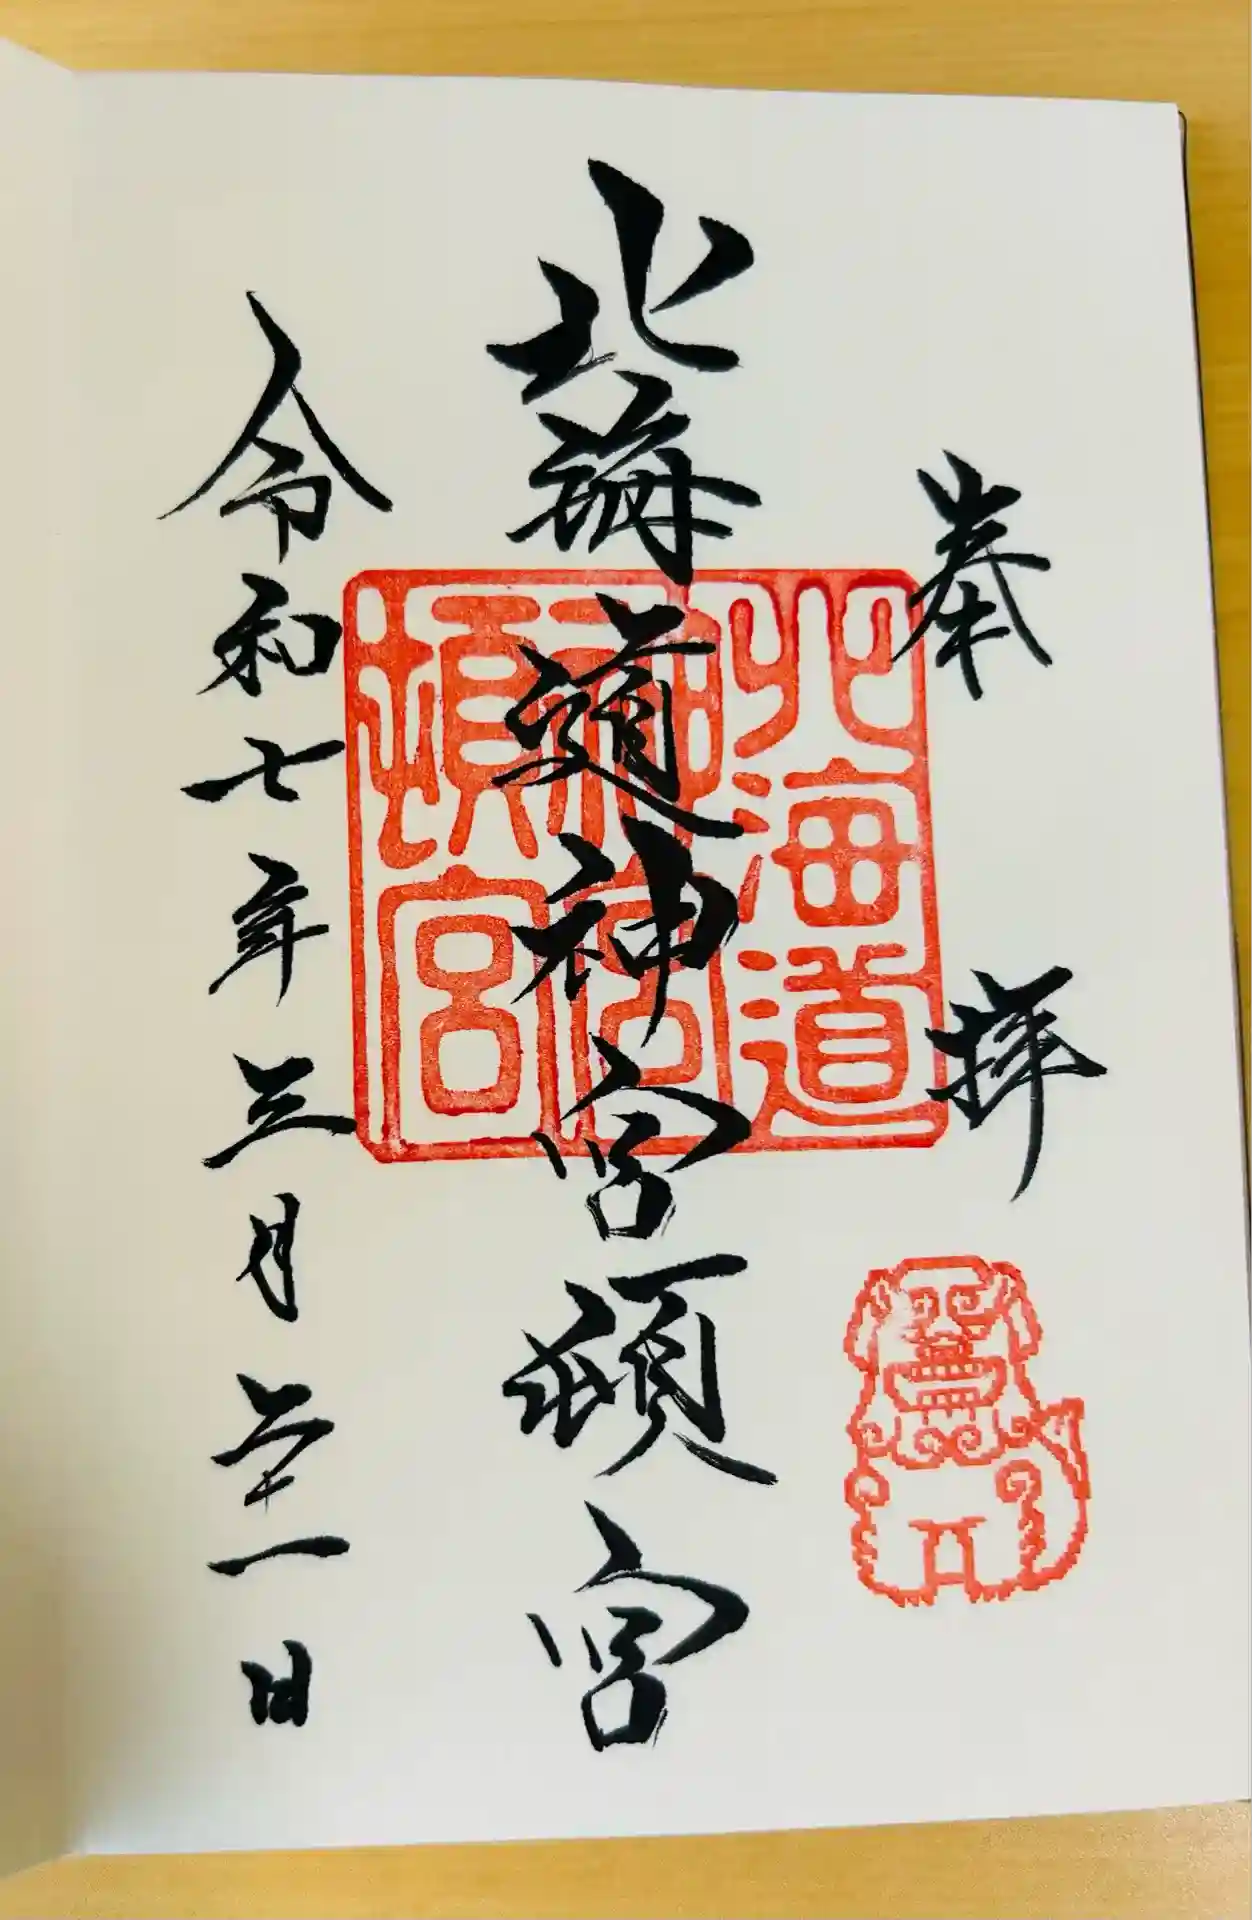 奉拝
北海道神宮頓宮
令和七年三月二十一日
北海道
神宮
頓宮